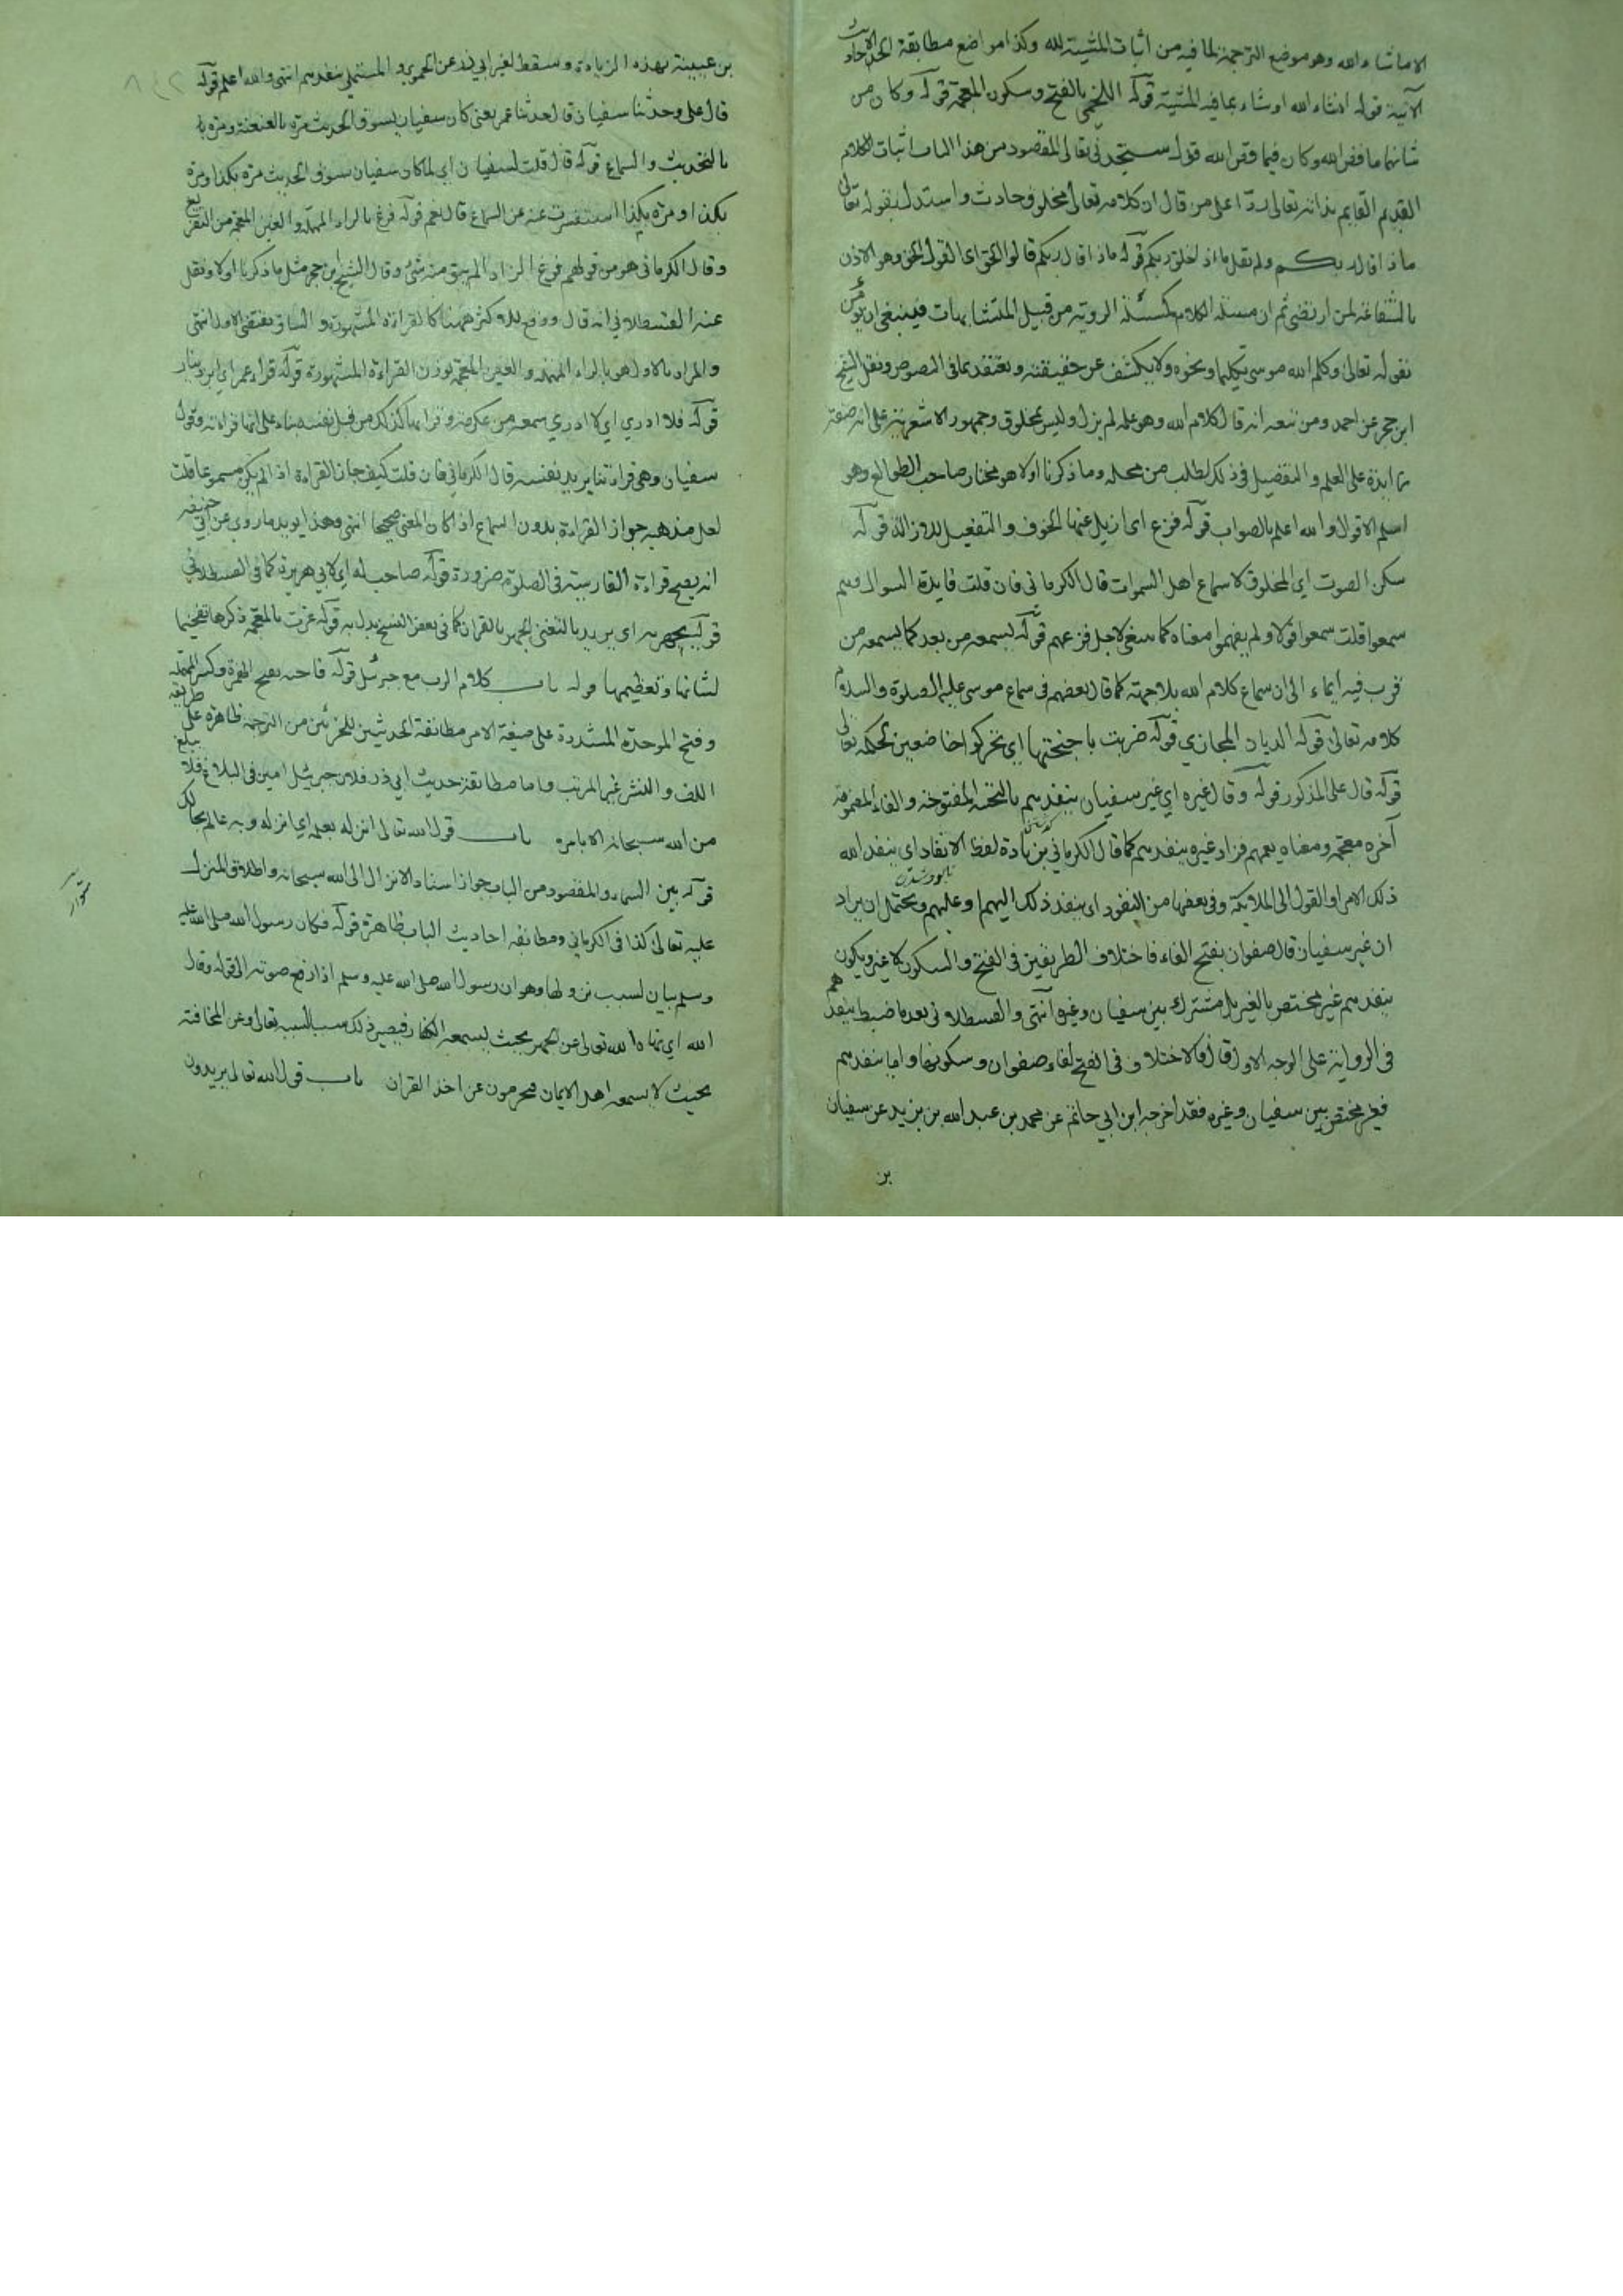 الا ما شاء الله وهو موضع الترجمة لما فيه من اثبات المشيئة لله وكذا مواضع مطابقة الاحاديث
الآتية قوله انشاء الله اوشاء بما فيه المشيئة قوله اللخمي بالفتح وسكون المعجمة قوله وكان من
شانهما ما قص الله وكان فيما قص الله قوله ستجدني تعالى المقصود من هذا الباب اثبات الكلام
القديم القايم بذاته تعالى ردّا على من قال ان كلامه تعالى مخلوق حادث واستدل بقوله تعالى
ماذا قال ربكم ولم يقل ماذا خلق ربكم قوله ماذا قال ربكم قالوا الحق اي القول الحق وهو الاذن
بالشفاعة لمن ارتضى ثم ان مسئلة الكلام كمسئلة الروية من قبيل المتشابهات فينبغي ان يؤمن
بقوله تعالى وكلم الله موسى تكليما ونحوه ولا يكشف عن حقيقته ويعتقد بما في النصوص ونقل الشيخ
ابن حجر عن احمد ومن تبعه انه قال كلام الله وهو علمه لم يزل وليس بمخلوق وجمهور الاشعرية على انه صفة
زايدة على العلم والتفصيل في ذلك يطلب من محله وما ذكرنا اولا هو مختار صاحب الطوالع وهو
اسلم الاقوال والله اعلم بالصواب قوله فزع اي ازيل عنها الخوف والتفعيل للازالة قوله
سكن الصوت اي المخلوق لاسماع اهل السموات قال الكرماني فان قلت فايدة السوال وهم
سمعوا قلت سمعوا قولا ولم يفهموا معناه كما ينبغي لاجل فزعهم قوله يسمعه من بعد كما يسمعه من
قرب فيه ايماء الى ان سماع كلام الله بلا جهة كما قال بعضهم في سماع موسى عليه الصلوة والسلام
كلامه تعالى قوله الديان المجازي قوله ضربت باجنحتها اي تحركوا خاضعين لحكمه تعالى
قوله قال علي المذكور قوله وقال غيره اي غير سفيان ينفذهم بالتحتية المفتوحة والفاء المضمومة
آخره معجمة ومعناه يعمهم فزاد غيره ينفذهم كما قال الكرماني بزيادة لفظ الانفاذ اي ينفذ الله
ذلك الامر او القول الى الملايكة وفي بعضها من النفوذ اي ينفذ ذلك اليهم او عليهم ويحتمل ان يراد
ان غير سفيان قال صفوان بفتح الفاء فاختلاف الطريقين في الفتح والسكون لا غير ويكون
ينفذهم غير مختص بالغير بل مشترك بين سفيان وغيره انتهى والقسطلاني بعد ما ضبط ينفذهم
في الرواية على الوجه الاول قال فالاختلاف في الفتح لفاء صفوان وسكونها واما ينفذهم
فغير مختص بين سفيان وغيره فقد اخرجه ابن ابي حاتم عن محمد بن عبد الله بن يزيد عن سفيان
بن
بن عيينة بهذه الزيادة وسقط لغير ابي ذر عن الحموي والمستملي ينفذهم انتهى والله اعلم قوله
قال علي وحدثنا سفيان قال حدثنا عمر يعني كان سفيان يسوق الحديث مرة بالعنعنة ومرة
بالتحديث والسماع قوله قال قلت لسفيان اي لما كان سفيان يسوق الحديث مرة بكذا ومرة
بكذا ومرة بكذا استفسرت عنه عن السماع قال نعم قوله فرغ بالراء المهملة والغين المعجمة من التفريغ
وقال الكرماني هو من قولهم فرغ الزاد الم يبق منه شئ وقال الشيخ ابن حجر مثل ما ذكرنا اولا ونقل
عنه القسطلاني انه قال ووقع للاكثر ههنا كالقراءة المشهورة والسياق يقتضي الاول انتهى
والمراد بالاول هو بالراء المهملة والغين المعجمة بوزن القراءة المشهورة قوله قراء عمر اي ابن دينار
قوله فلا ادري اي لا ادري سمعه من عكرمة وقراءها كذلك من قبل نفسه بناء على انها قراءته وقول
سفيان وهي قراءتنا يريد نفسه قال الكرماني فان قلت كيف جاز القراءة اذا لم يكن مسموعا قلت
لعل مذهبه جواز القراءة بدون السماع اذا كان المعنى صحيحا انتهى وهذا يويد ما روي عن ابي حنيفة
انه يصح قراءة الفارسية في الصلوة ضرورة قوله صاحب له اي لابي هريرة كما في القسطلاني
قوله يجهر به اي يريد بالتغني الجهر بالقران كما في بعض النسخ بدل به قوله غرت بالمعجمة ذكرها تفخيما
لشانها وتعظيمها قوله باب كلام الرب مع جبرئيل قوله فاحبه بفتح الهمزة وكسر المهملة
وفتح الموحدة المشددة على صيغة الامر مطابقة الحديثين للجزئين من الترجمة ظاهرة على طريقة
اللف والنشر غير المرتب واما مطابقة حديث ابي ذر فلان جبرئيل امين في البلاغ فلا يبلغ
من الله سبحانه الا بامره باب قول الله تعالى انزله بعلمه اي انزله وبه عالم بحالك
قوله بين السماء والمقصود من الباب جواز اسناد الانزال الى الله سبحانه واطلاق المنزل
عليه تعالى كذا في الكرماني ومطابقه احاديث الباب ظاهرة قوله فكان رسول الله صلى الله عليه
وسلم بيان لسبب نزولها وهو ان رسول الله صلى الله عليه وسلم اذا رفع صوته الى قوله وقال
الله اي نهاه الله تعالى عن الجهر بحيث يسمعه الكفار فيصير ذلك سببا لسبه تعالى وعن المخافتة
بحيث لا يسمعه اهل الايمان فيحرمون عن اخذ القران باب قول الله تعالى يريدون